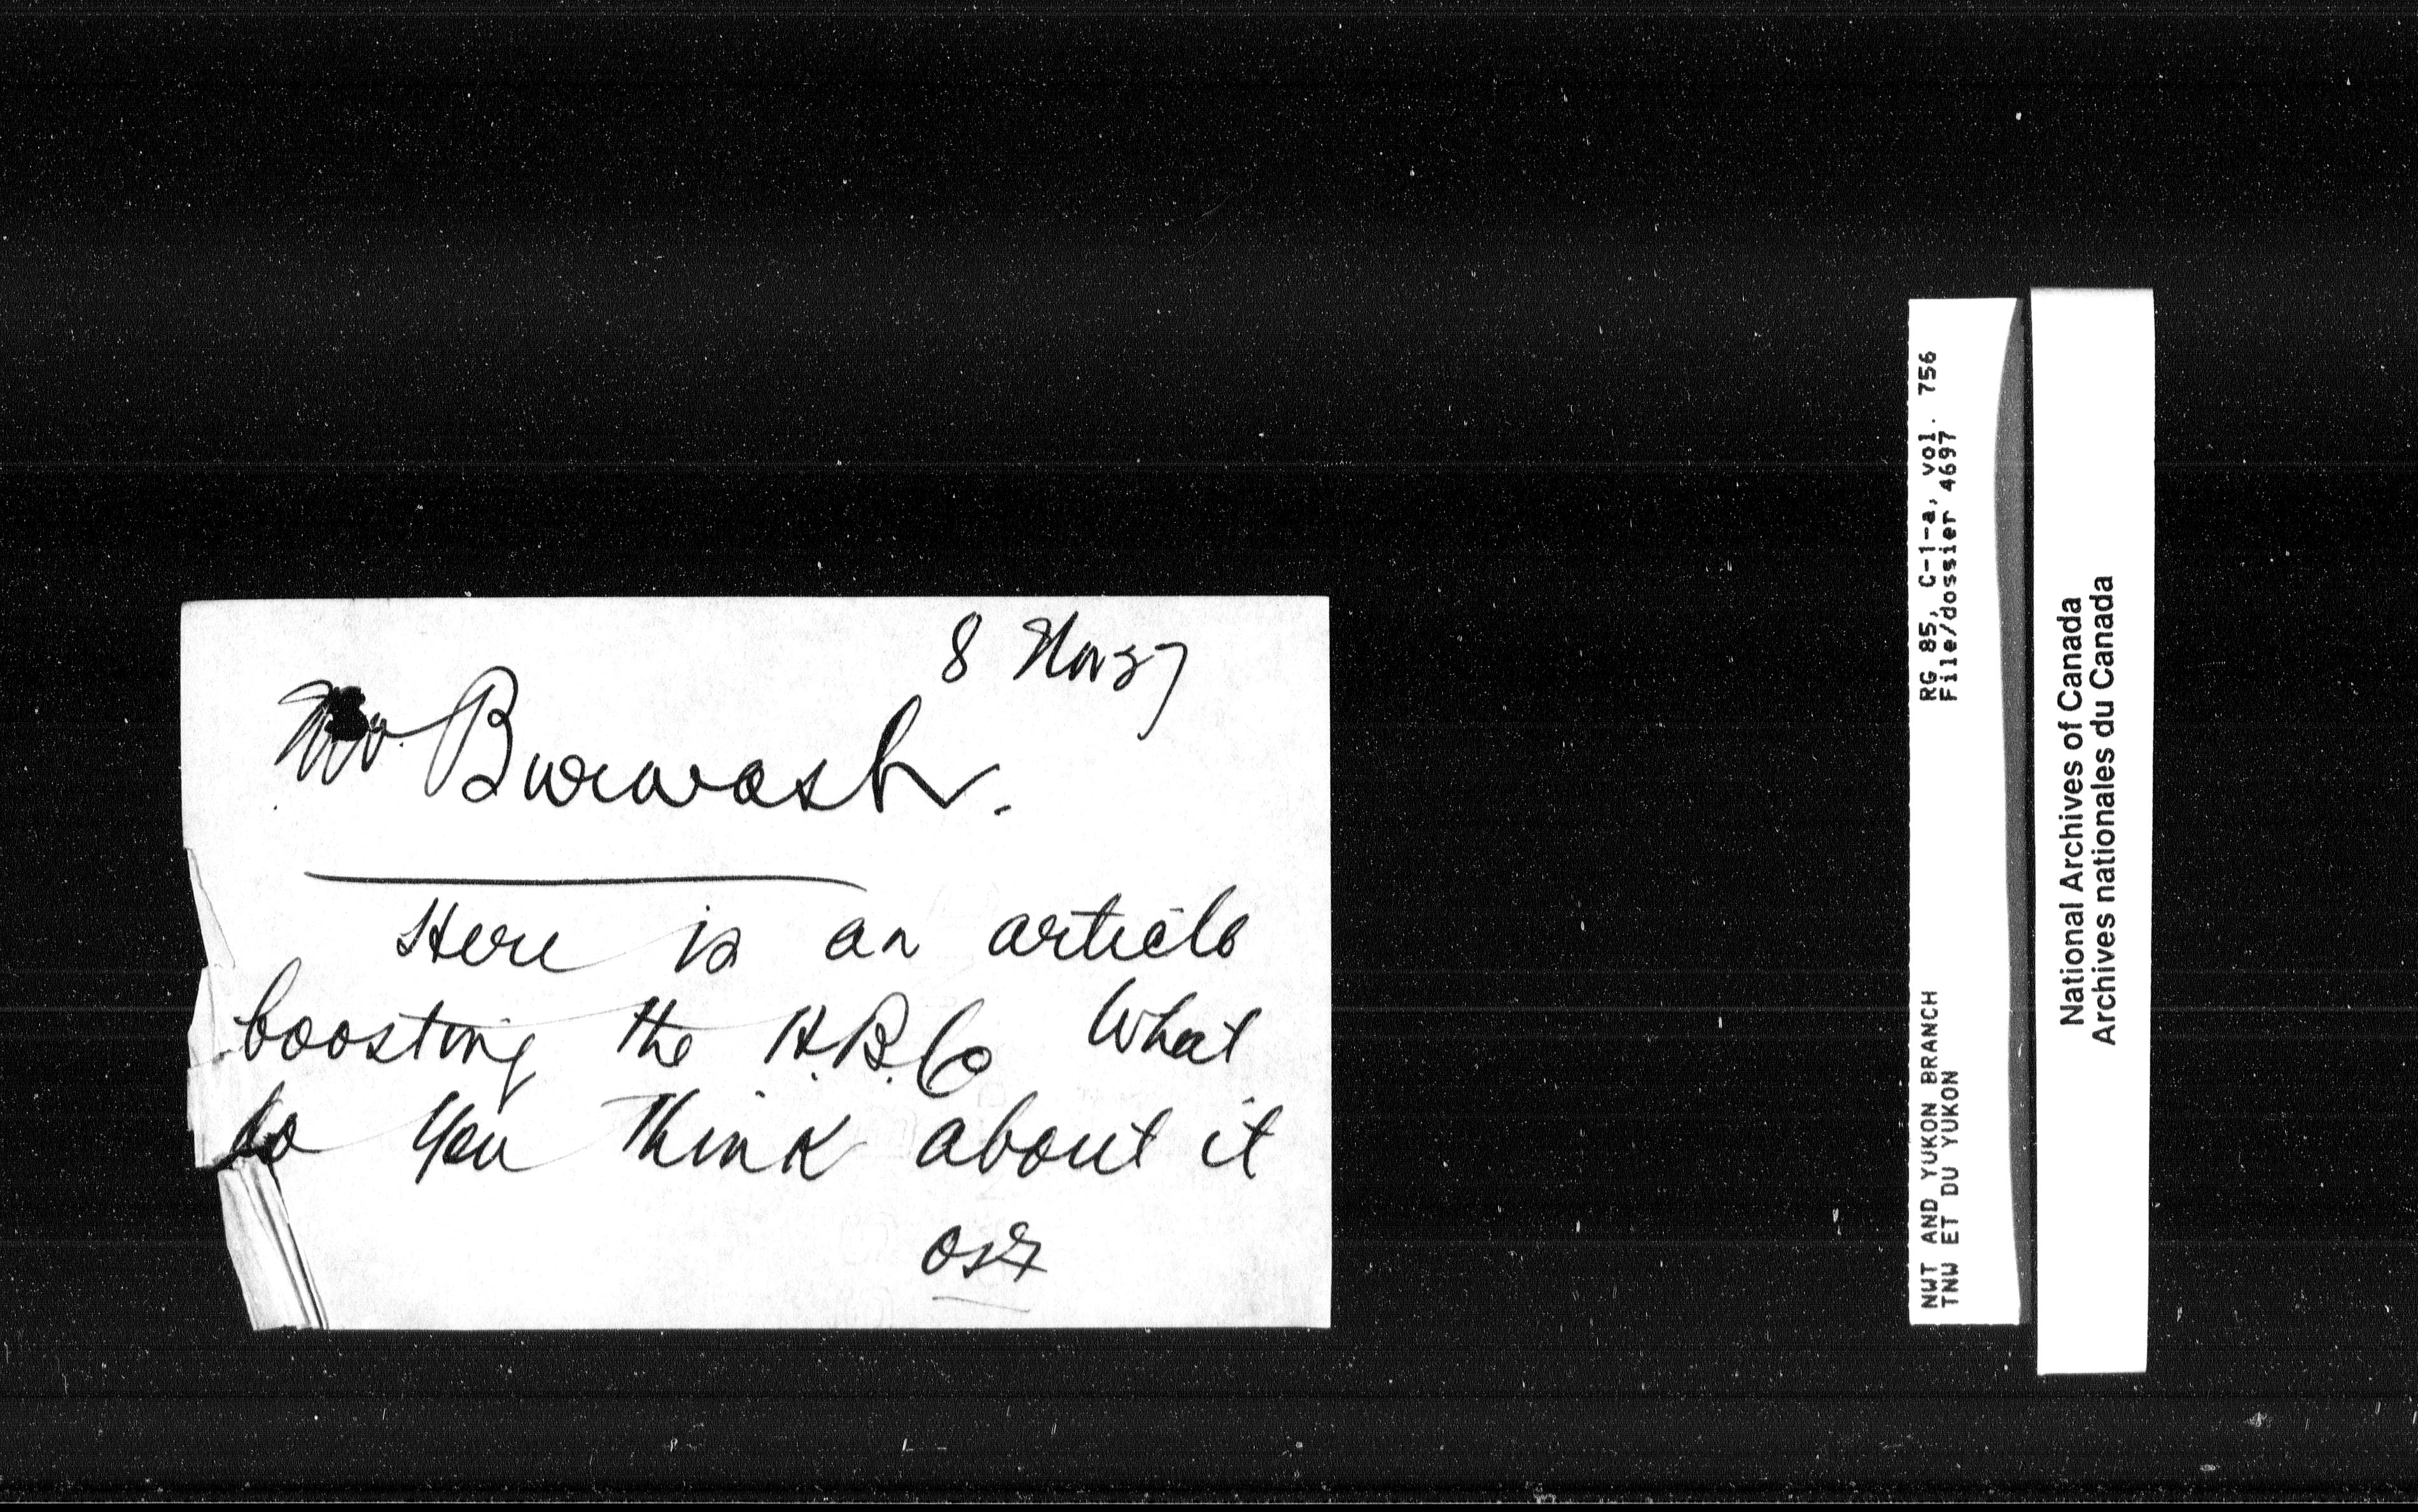 8 Nov 27
Mr. Burwash.
Here is an article
boosting the H.B.Co What
do you think about it
OSF
RG 85, C-1-a, vol. 756
File/dossier 4697
NWT AND YUKON BRANCH
TNW ET DU YUKON
National Archives of Canada
Archives nationales du Canada